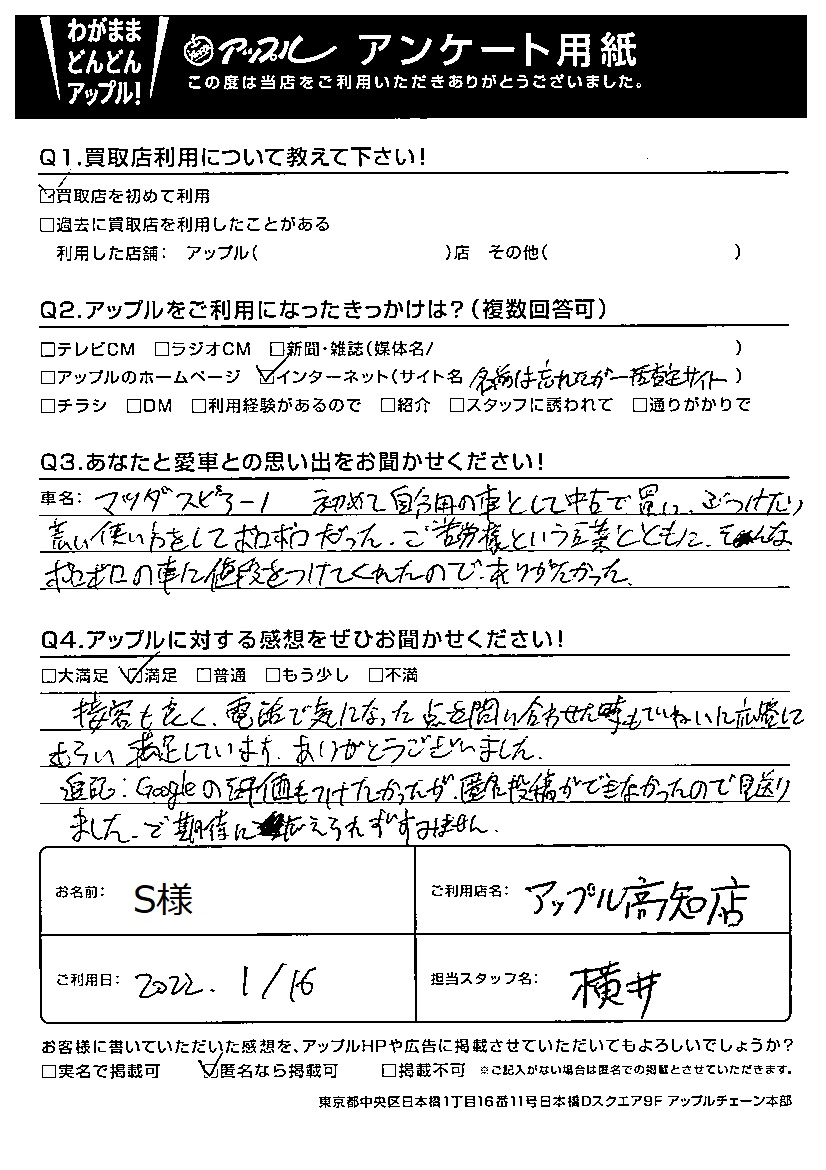 わがまま
どんどん
アップル!
アップル アンケート用紙
この度は当店をご利用いただきありがとうございました。
Q1.買取店利用について教えて下さい!
☑買取店を初めて利用
□過去に買取店を利用したことがある
利用した店舗: アップル( )店 その他( )
Q2.アップルをご利用になったきっかけは?(複数回答可)
□テレビCM □ラジオCM □新聞・雑誌(媒体名/ )
□アップルのホームページ ☑インターネット(サイト名 名前は忘れたが一括査定サイト )
□チラシ □DM □利用経験があるので □紹介 □スタッフに誘われて □通りがかりで
Q3.あなたと愛車との思い出をお聞かせください!
車名: マツダスピアーノ 初めて自分用の車として中古で買い、ぶつけたり
荒い使い方をしてボロボロだった。ご苦労様という言葉とともに、そんな
ボロボロの車に値段をつけてくれたので、ありがたかった。
Q4.アップルに対する感想をぜひお聞かせください!
□大満足 ☑満足 □普通 □もう少し □不満
接客も良く、電話で気になった点を問い合わせた時もていねいに応答して
もらい満足しています。ありがとうございました。
追記:Googleの評価もつけたかったが、匿名投稿ができなかったので見送り
ました。ご期待に応えられずすみません。
お名前: S様 ご利用店名: アップル高知店
ご利用日: 2022. 1/16 担当スタッフ名: 横井
お客様に書いていただいた感想を、アップルHPや広告に掲載させていただいてもよろしいでしょうか?
□実名で掲載可 ☑匿名なら掲載可 □掲載不可 ※ご記入がない場合は匿名での掲載とさせていただきます。
東京都中央区日本橋1丁目16番11号日本橋Dスクエア9F アップルチェーン本部